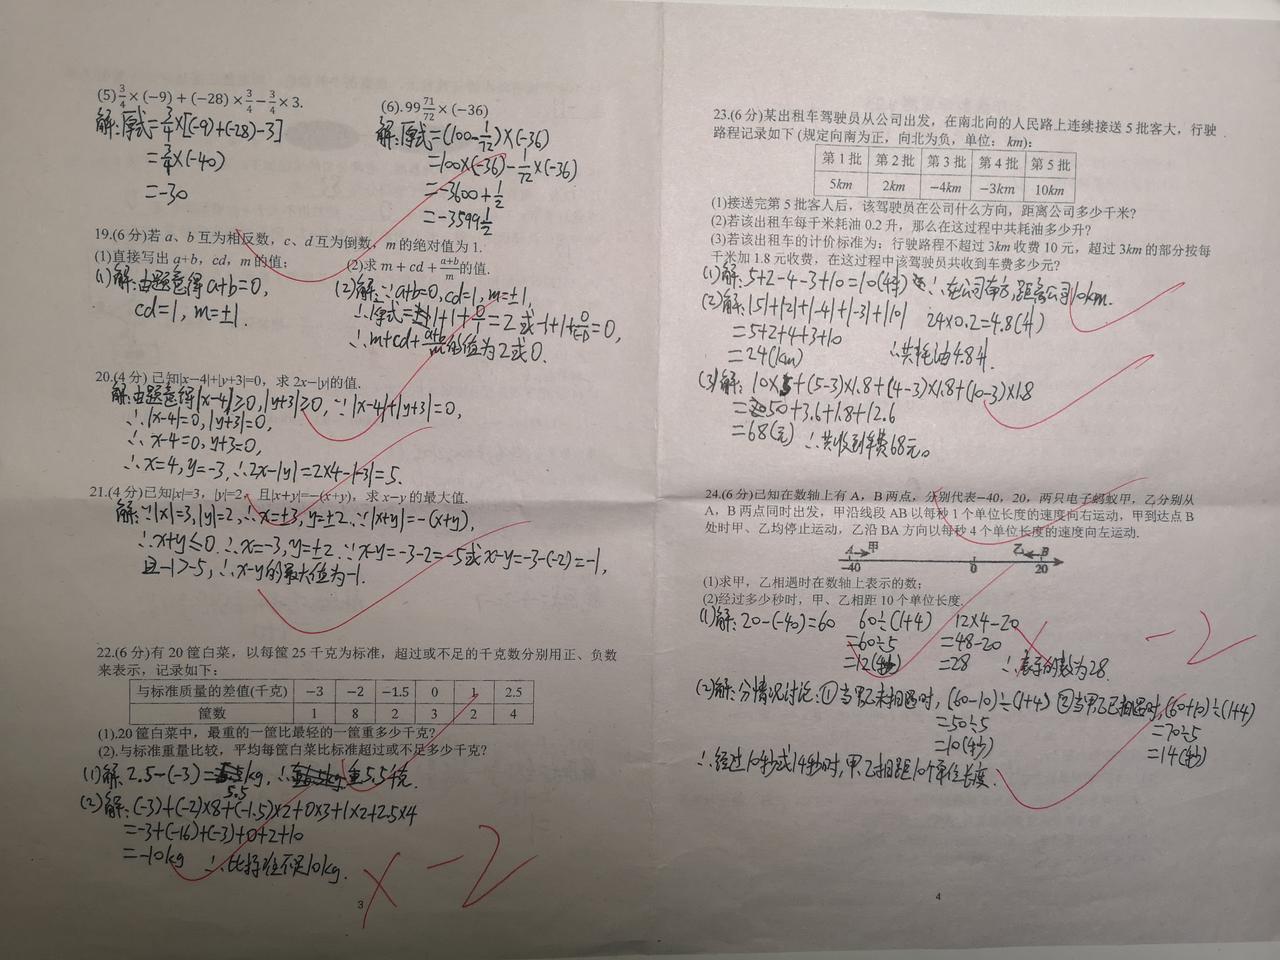 (5) 3/4×(−9)+(−28)×3/4−3/4×3.
解:原式=3/4×[(-9)+(-28)-3]
=3/4×(-40)
=-30
(6).99 71/72×(−36)
解:原式=(100-1/72)×(-36)
=100×(-36)-1/72×(-36)
=-3600+1/2
=-3599 1/2
19.(6分)若a、b互为相反数，c、d互为倒数，m的绝对值为1.
(1)直接写出a+b，cd，m的值；
(2)求m+cd+(a+b)/m的值.
(1)解:由题意得a+b=0,
cd=1, m=±1.
(2)解:∵a+b=0, cd=1, m=±1,
∴原式=1+1+0/1=2或-1+1+0/(-1)=0,
∴m+cd+(a+b)/m的值为2或0.
20.(4分) 已知|x−4|+|y+3|=0，求2x−|y|的值.
解:由题意得|x-4|≥0,|y+3|≥0, ∵|x-4|+|y+3|=0,
∴|x-4|=0,|y+3|=0,
∴x-4=0, y+3=0,
∴x=4, y=-3, ∴2x-|y|=2×4-|-3|=5.
21.(4分)已知|x|=3，|y|=2，且|x+y|=−(x+y)，求x−y的最大值.
解:∵|x|=3,|y|=2, ∴x=±3, y=±2. ∵|x+y|=-(x+y),
∴x+y≤0. ∴x=-3, y=±2. ∵x-y=-3-2=-5或x-y=-3-(-2)=-1,
且-1>-5, ∴x-y的最大值为-1.
22.(6分)有20筐白菜，以每筐25千克为标准，超过或不足的千克数分别用正、负数
来表示，记录如下：
与标准质量的差值(千克) −3 −2 −1.5 0 1 2.5
筐数 1 8 2 3 2 4
(1).20筐白菜中，最重的一筐比最轻的一筐重多少千克?
(2).与标准重量比较，平均每筐白菜比标准超过或不足多少千克?
(1)解: 2.5-(-3)=5.5kg, ∴重5.5千克.
(2)解:(-3)+(-2)×8+(-1.5)×2+0×3+1×2+2.5×4
=-3+(-16)+(-3)+0+2+10
=-10kg ∴比标准不足10kg.
× -2
3
23.(6分)某出租车驾驶员从公司出发，在南北向的人民路上连续接送5批客大，行驶
路程记录如下 (规定向南为正，向北为负，单位：km)：
第1批 第2批 第3批 第4批 第5批
5km 2km −4km −3km 10km
(1)接送完第5批客人后，该驾驶员在公司什么方向，距离公司多少千米?
(2)若该出租车每千米耗油0.2升，那么在这过程中共耗油多少升?
(3)若该出租车的计价标准为：行驶路程不超过3km收费10元，超过3km的部分按每
千米加1.8元收费，在这过程中该驾驶员共收到车费多少元?
(1)解:5+2-4-3+10=10(千米) ∴在公司南方,距离公司10km.
(2)解:|5|+|2|+|-4|+|-3|+|10| 24×0.2=4.8(升)
=5+2+4+3+10
=24(km) ∴共耗油4.8升.
(3)解: 10×5+(5-3)×1.8+(4-3)×1.8+(10-3)×1.8
=50+3.6+1.8+12.6
=68(元) ∴共收到车费68元。
24.(6分)已知在数轴上有A，B两点，分别代表−40，20，两只电子蚂蚁甲，乙分别从
A，B两点同时出发，甲沿线段AB以每秒1个单位长度的速度向右运动，甲到达点B
处时甲、乙均停止运动，乙沿BA方向以每秒4个单位长度的速度向左运动.
A 甲 乙 B
−40 0 20
(1)求甲，乙相遇时在数轴上表示的数；
(2)经过多少秒时，甲、乙相距10个单位长度.
(1)解: 20-(-40)=60 60÷(1+4) 12×4-20
=60÷5 =48-20
=12(秒) =28 ∴表示的数为28.
× -2
(2)解:分情况讨论:①当甲乙未相遇时, (60-10)÷(1+4) ②当甲乙已相遇时, (60+10)÷(1+4)
=50÷5 =70÷5
=10(秒) =14(秒)
∴经过10秒或14秒时,甲、乙相距10个单位长度.
4